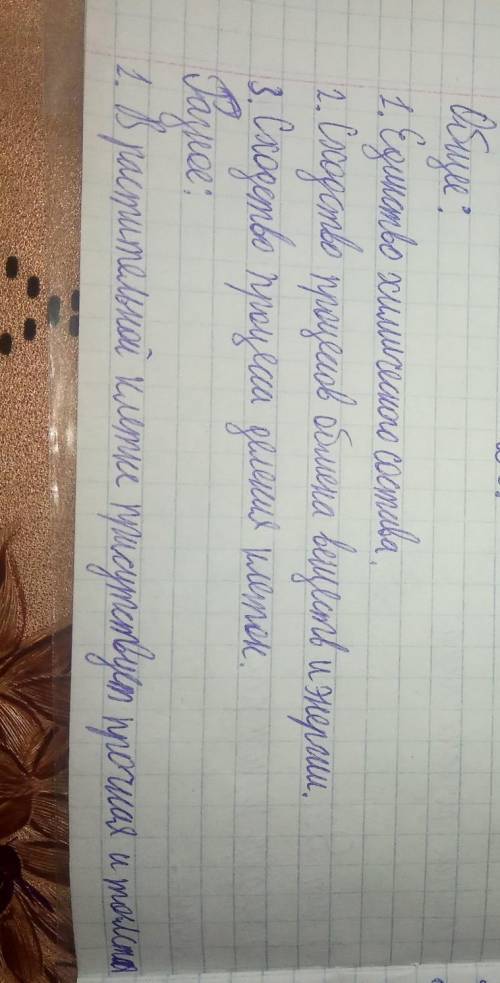 Общее:
1. Единство химического состава.
2. Сходство процессов обмена веществ и энергии.
3. Сходство процесса деления клеток.
Разное:
1. В растительной клетке присутствует прочная и толста